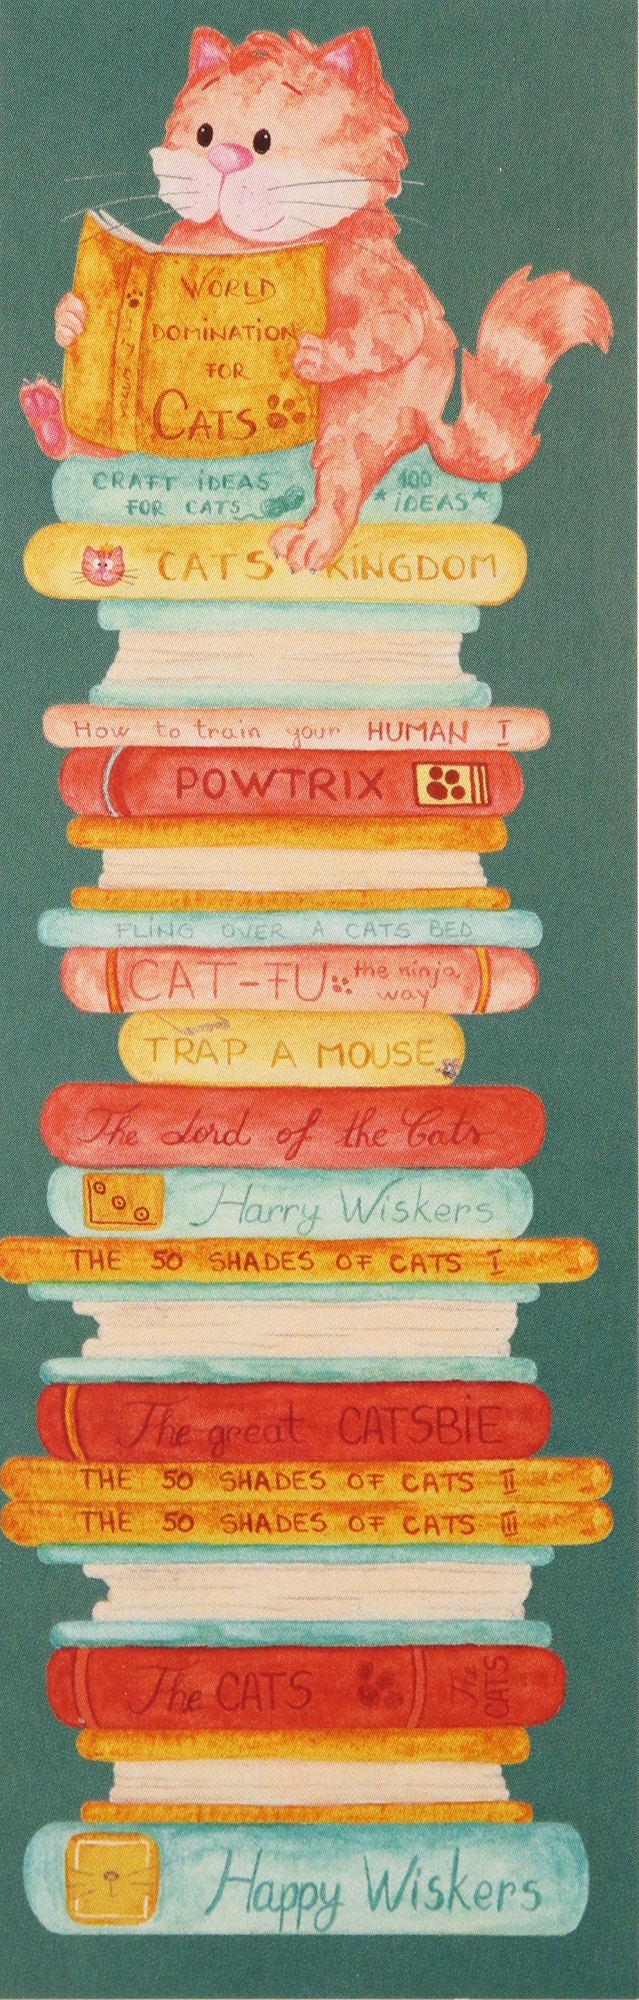 WORLD
DOMINATION
FOR
CATS
CRAFT iDEAS
FOR CATS
100
*iDEAS*
CATS KiNGDOM
How to train your HUMAN I
POWTRIX
FLiNG OVER A CATS BED
CAT-FU the ninja
way
TRAP A MOUSE
The Lord of the Cats
Harry Wiskers
THE 50 SHADES OF CATS I
The great CATSBiE
THE 50 SHADES OF CATS II
THE 50 SHADES OF CATS III
The CATS
The
CATS
Happy Wiskers